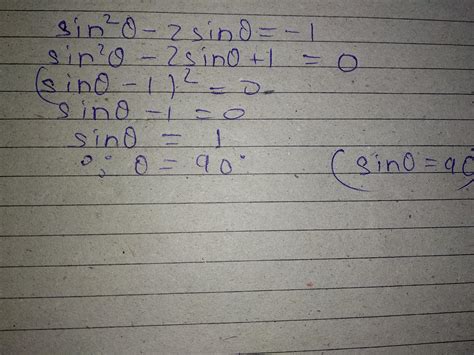 sin²θ - 2sinθ = -1
sin²θ - 2sinθ + 1 = 0
(sinθ - 1)² = 0
sinθ - 1 = 0
sinθ = 1
∴ θ = 90° (sinθ = 90